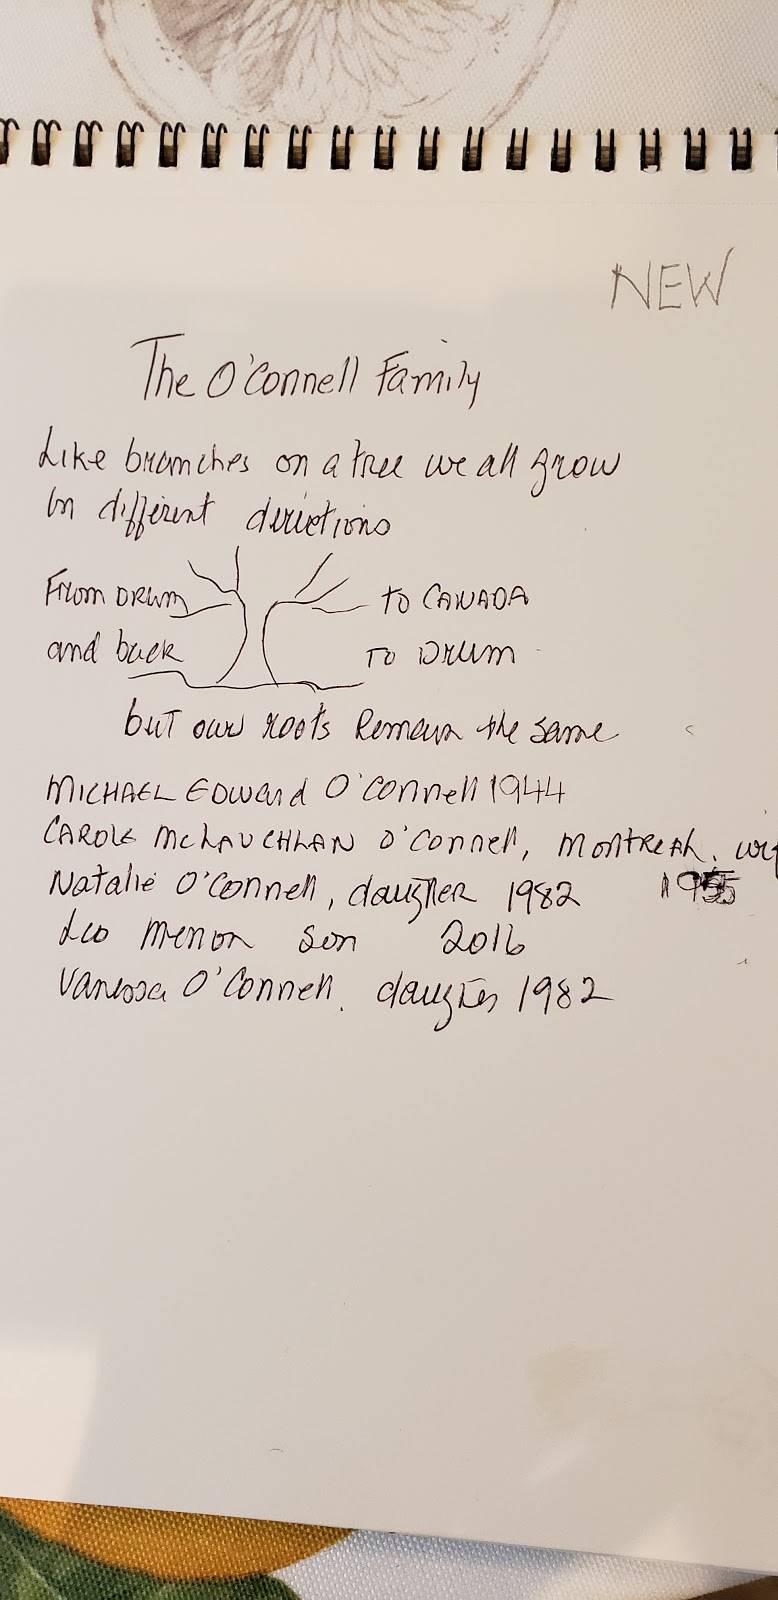 NEW
The O'Connell Family
Like branches on a tree we all grow
in different directions
From DRUM to CANADA
and back to Drum
but our roots Remain the same
MICHAEL Edward O'Connell 1944
CAROLE McLAUCHLAN O'Connell, Montreal.
Natalie O'Connell, daughter 1982 1955
Leo Menon son 2016
Vanessa O'Connell. daughter 1982